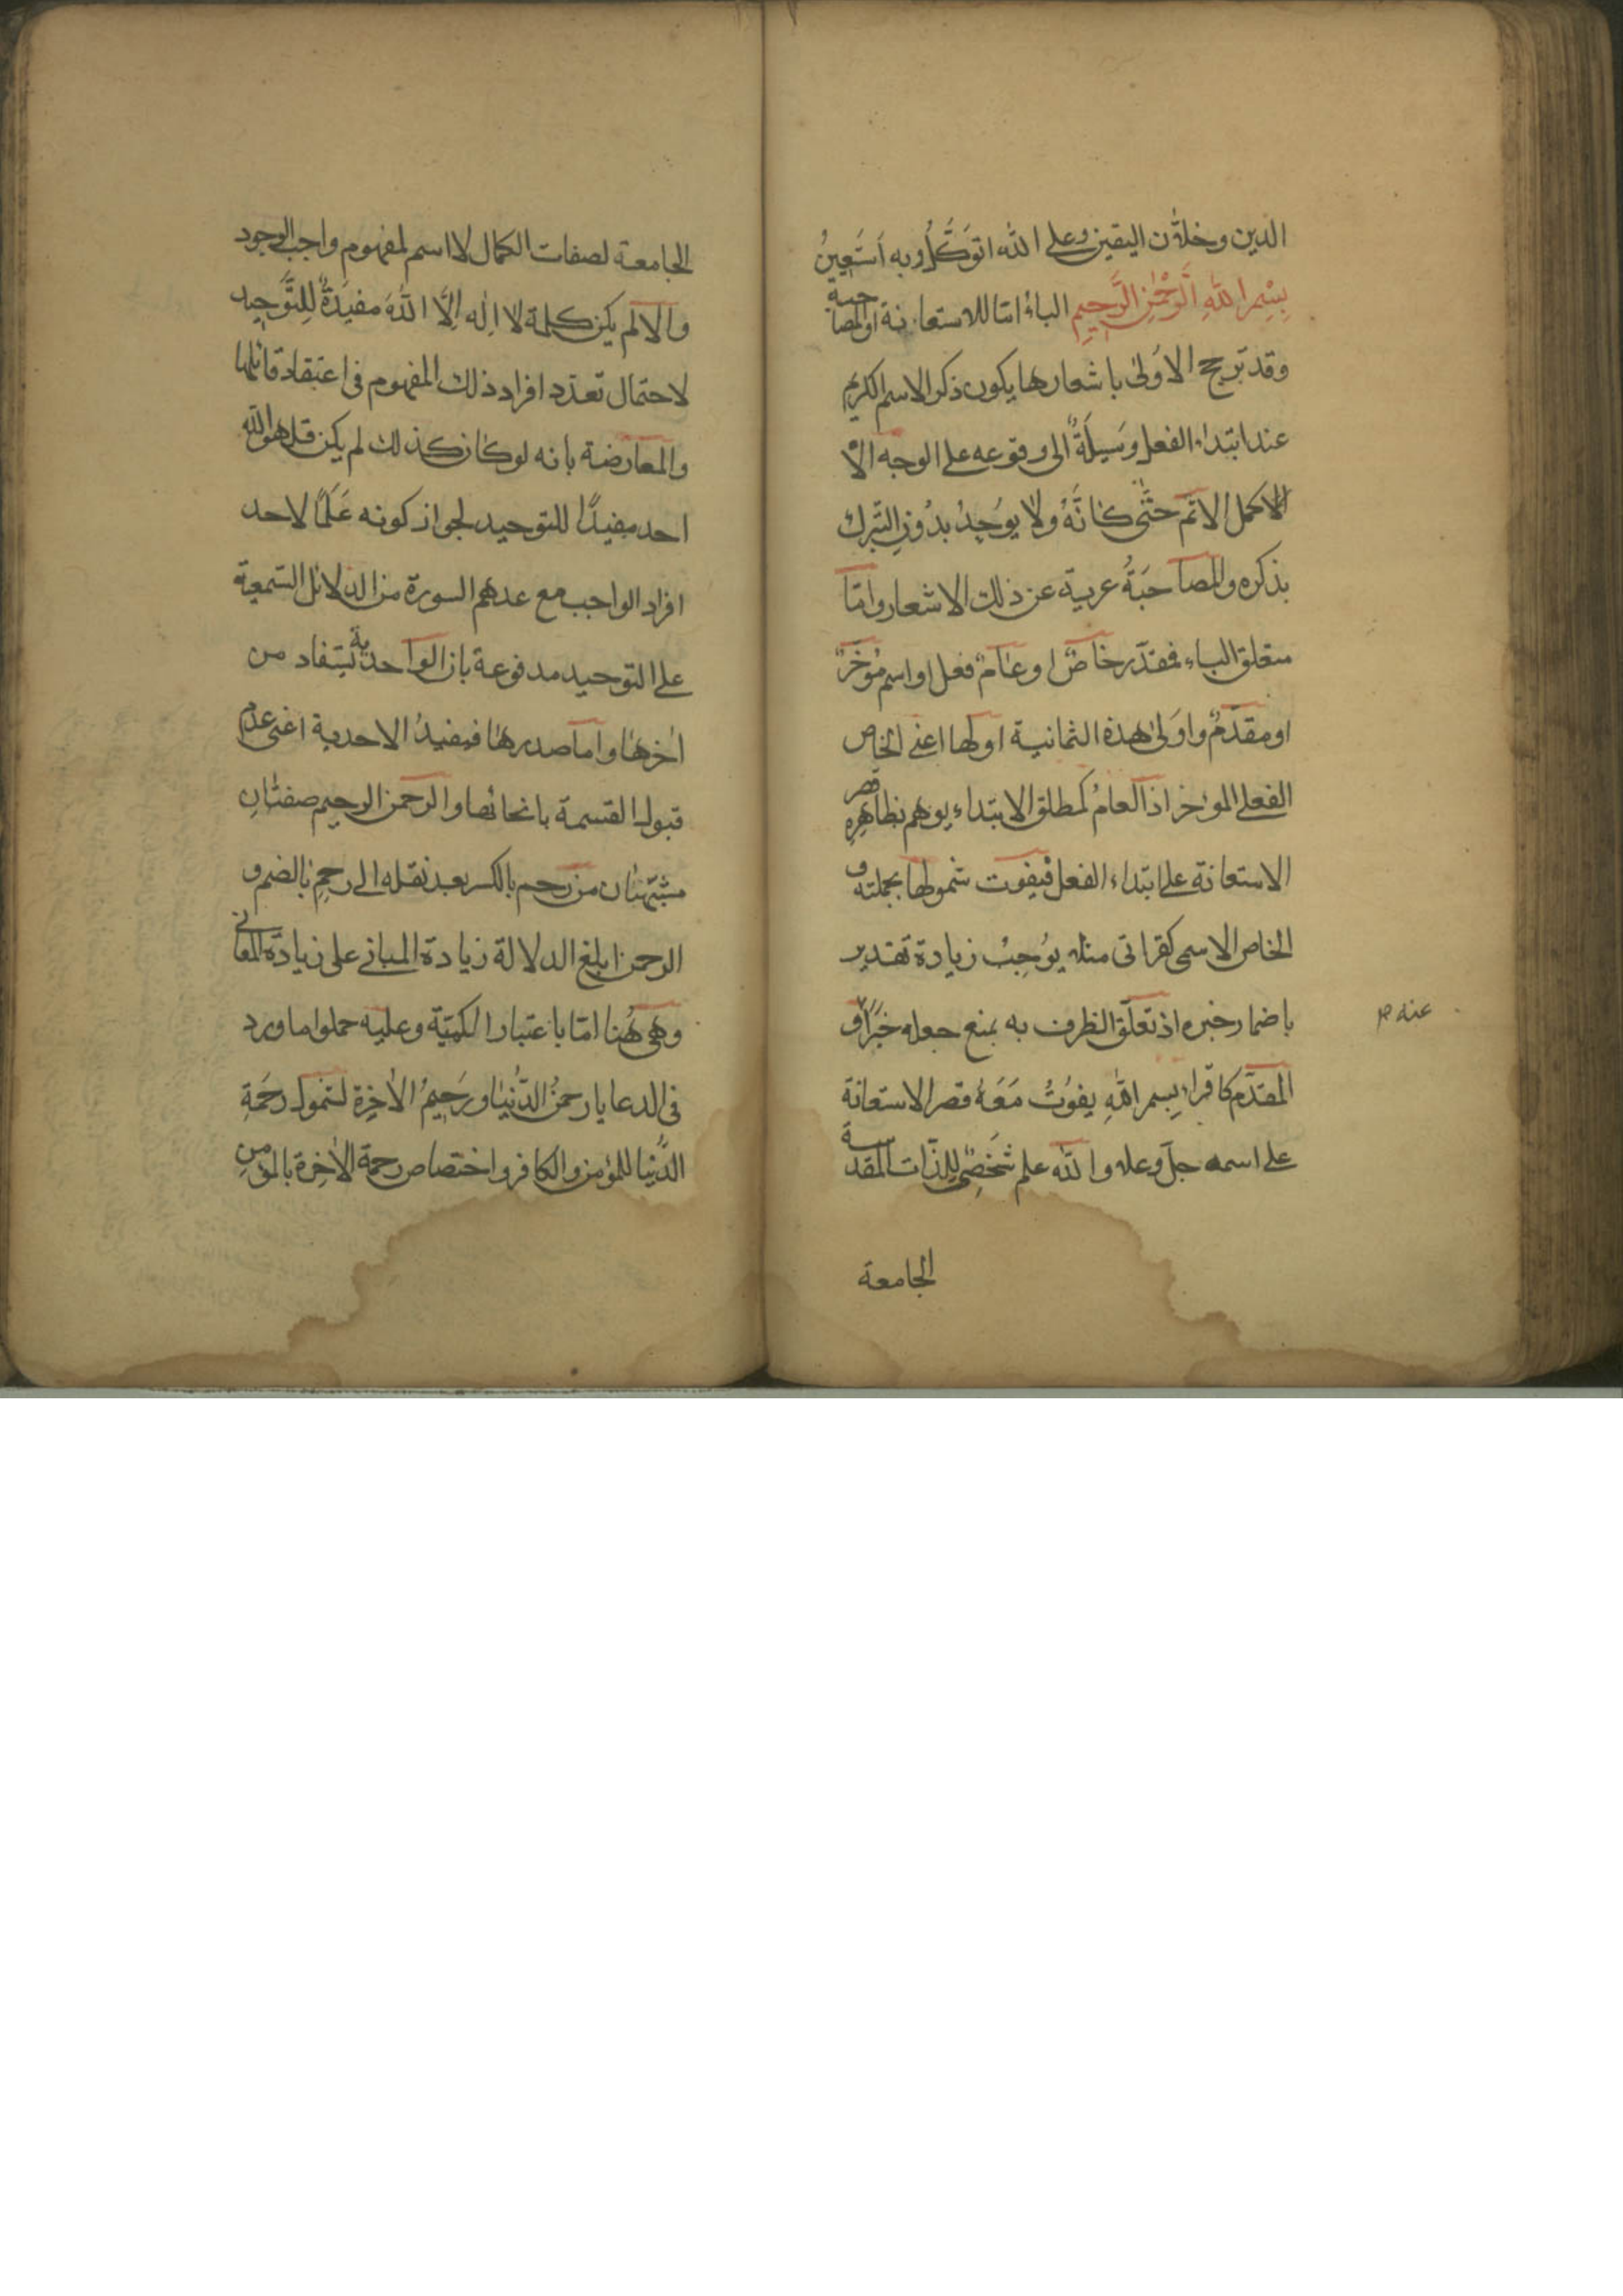 الدين وخلان اليقين وعلى الله اتوَكَّلُ وبه اَستَعِينُ
بِسْمِ اللهِ الرَّحْمٰنِ الرَّحِيمِ الباءُ امّا للاستعانة او المصاحبة
وقد ترجح الاُولىٰ باشعارها بكون ذكر الاسم الكريم
عند ابتداء الفعل وسَيلَةً الى وقوعه على الوجه الا
الاكمل الاتم حَتّٰى كَانَّهُ ولا يوُجدُ بدُونِ التبرك
بذكره والمصاحَبَةُ عرية عن ذلك الاشعار وامّا
متعلق الباء فمقدّر خاصٌ او عٰامٌ فعل او اسم مُؤخَرٌ
او مقدّمٌ واوَلىٰ هذة الثمانية اولها اعنى الخاص
الفعلى المؤخر اذ العامُ كمطلق الابتداء يوهم بظاهِرِهِ قصر
الاستعانة على ابتداء الفعل فيفوت شمولها بجملته و
الخاص الاسمى كقرائتى مثلا يوُجِبُ زيادة تقدير
باضمار خبره اذ تعلّق الظرف به يمنع جعله خَبَرًا و
عنه م
المقدّم كاقراء بِسمِ اللهِ يفوُتُ مَعَهُ قصر الاستعانة
على اسمه جلّ وعلا والله علم شَخَصِىٌ لِلذّات المقدسة
الجامعة
الجامعة لصفات الكمال لا اسم لمفهوم واجب الوجود
والا لم يكن كلمة لا اِلٰه اِلّا اللهُ مفيَدةً لِلتَّوحِيد
لاحتمال تعدّد افراد ذلك المفهوم فى اعتقاد قائلها
والمعارضة بانه لو كان كذلك لم يكن قل هو الله
احد مفيدًا للتوحيد لجواز كونه عَلَمًا لاحد
افراد الواجب مع عدهم السورة من الدلائل السَّمعية
على التوحيد مدفوعة بان الواحدية يستفاد من
اٰخرها واما صدرها فيفيدُ الاحدية اعنى عدم
قبول القسمة بانحائها والرحمن الرحيم صفتٰانِ
مشبّهتان من رحم بالكسر بعد نقله الى رحُم بالضم و
الرحمن ابلغ الدلالة زيادة المبانى على زيادة المعانى
وهى هُنا امّا باعتبار الكميّة وعليه حملوا ما ورد
فى الدعا يا رحمنُ الدُّنيٰا ورَحِيمُ الاٰخِرَة لشمول رَحَمَةِ
الدُّنيا للمؤمن والكافر واختصاص رحمة الاٰخِرة بالمؤمنِ